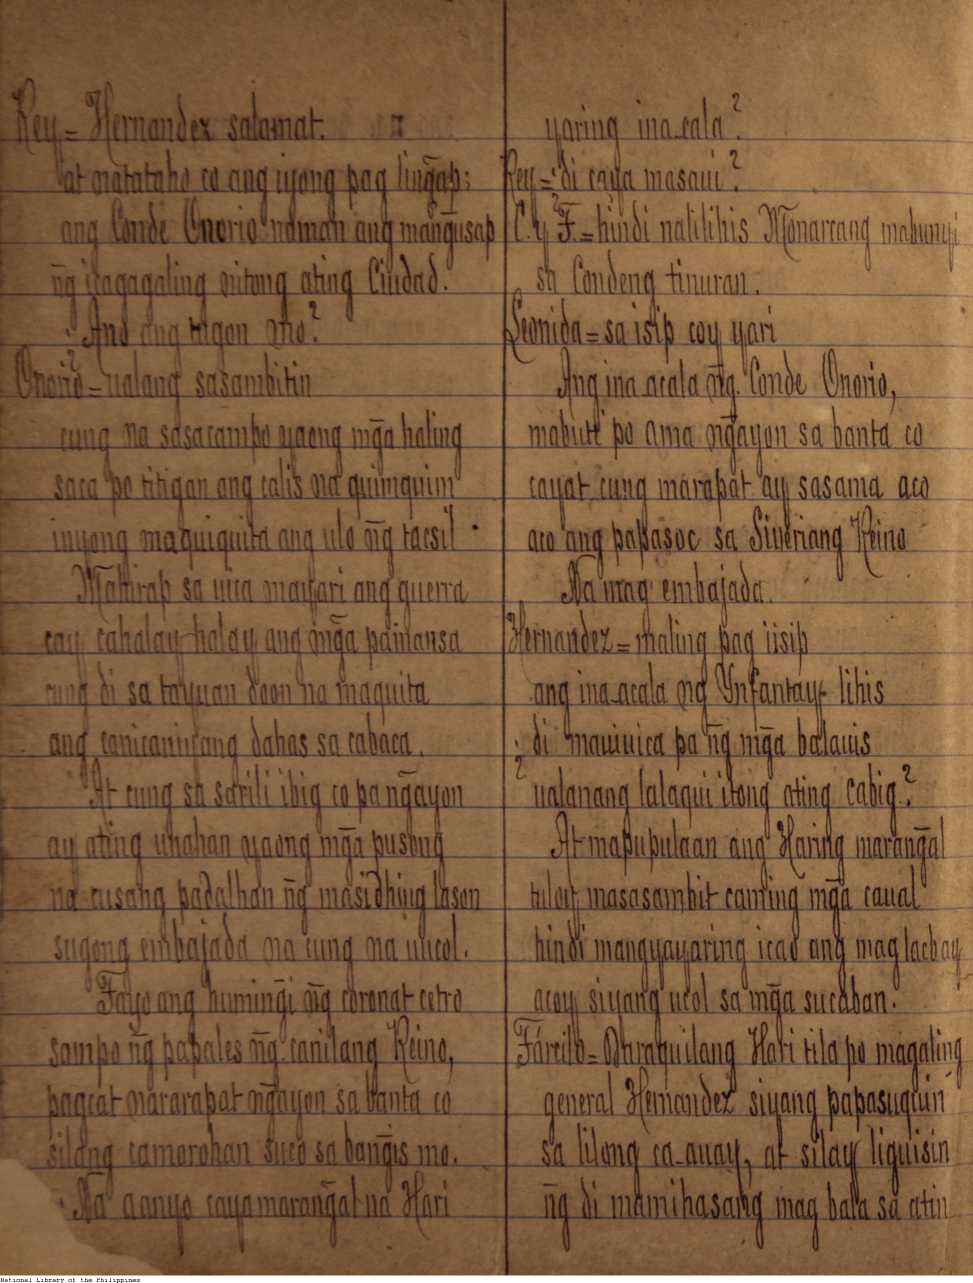 Rey = Hernandez salamat.
at natataho co ang iyong pag lin̄gap;
ang Conde Onorio naman ang man̄gusap
n̄g icagagaling nitong ating Ciudad.
Ano ang tugon mo?
Onorio = ualang sasambitin
cung na sasacampo yaong mn̄ga haling
saca po titigan ang calis na quimquim
inyong maquiquita ang ulo n̄g tacsil.
Mahirap sa uica mayari ang guerra
cahalay halay ang mn̄ga pamansa
cung di sa tayuan doon na maquita
ang canicanicang dahas sa cabaca.
At cung sa sarili ibig co pa n̄gayon
ay ating unahan yaong mn̄ga pusong
na cusang padalhan n̄g masidhing lason
sugong embajada na cung na uucol.
Tayo ang humin̄gi n̄g corona't cetro
sampo n̄g papales n̄g canilang Reino,
pagcat nararapat n̄gayon sa banta co
silang camorohan suco sa ban̄gis mo.
Na aanyo caya maran̄gal na Hari
yaring ina_cala?
Rey = di caya masaui?
C. y F. = hindi nalilihis Monarcang mabunyi
sa Condeng tinuran.
Leonida = sa isip coy yari
Ang ina_acala n̄g Conde Onorio,
mabuti po ama n̄gayon sa banta co
cayat cung marapat ay sasama aco
aco ang papasoc sa Siveriang Reino
Na mag embajada.
Hernandez = maling pag iisip
ang ina_acala ng Ynfantay lihis
di mauiuica pa n̄g mn̄ga balauis
ualanang lalaqui itong ating cabig?
At mapupulaan ang Haring maran̄gal
tuloy masasambit caming mn̄ga caual
hindi mangyayaring icao ang mag lacbay
acoy siyang ucol sa mn̄ga sucaban.
Farcilo = Daraquilang Hari tila po magaling
general Hernandez siyang papasuquin
sa lilong ca_auay, at silay liguisin
n̄g di mamihasang mag bala sa atin